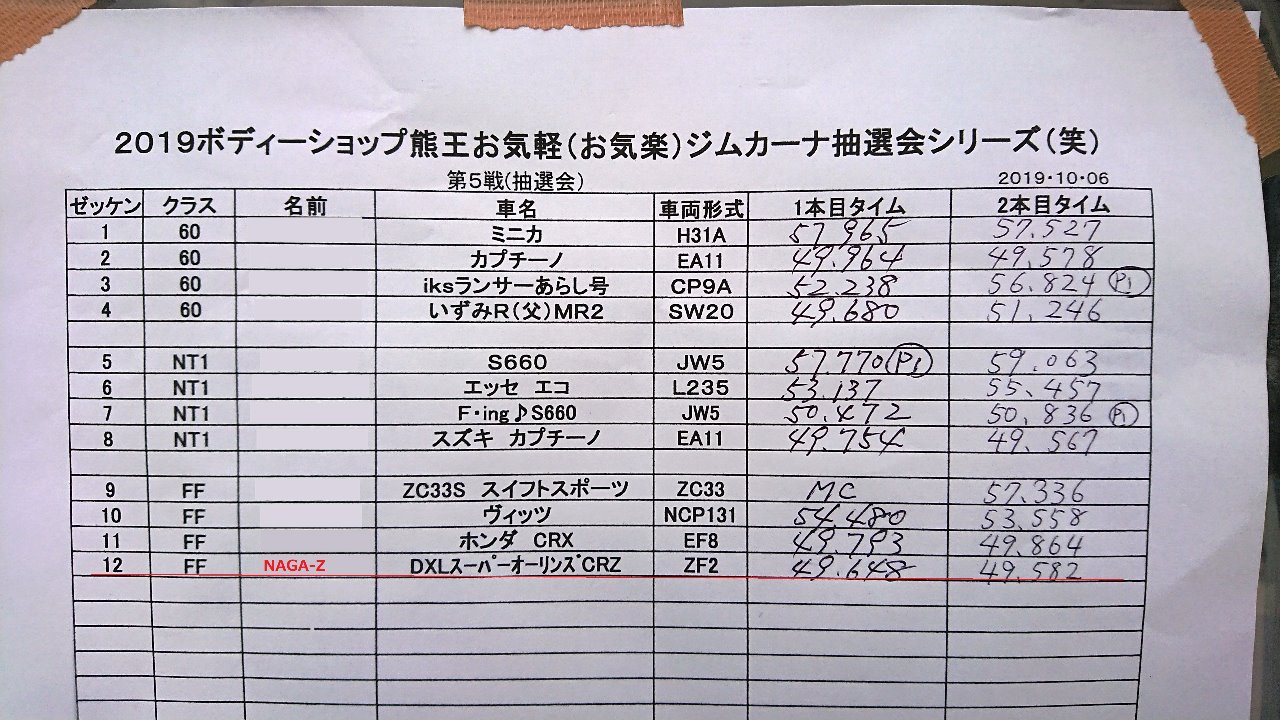 2019ボディーショップ熊王お気軽(お気楽)ジムカーナ抽選会シリーズ(笑)
第5戦(抽選会) 2019・10・06
ゼッケン クラス 名前 車名 車両形式 1本目タイム 2本目タイム
1 60 ミニカ H31A 57.965 57.527
2 60 カプチーノ EA11 49.964 49.578
3 60 iksランサーあらし号 CP9A 52.238 56.824 P1
4 60 いずみR(父)MR2 SW20 49.680 51.246
5 NT1 S660 JW5 57.770 P1 59.063
6 NT1 エッセ エコ L235 53.137 55.457
7 NT1 F・ing♪S660 JW5 50.472 50.836 P1
8 NT1 スズキ カプチーノ EA11 49.754 49.567
9 FF ZC33S スイフトスポーツ ZC33 MC 57.336
10 FF ヴィッツ NCP131 54.480 53.558
11 FF ホンダ CRX EF8 49.793 49.864
12 FF NAGA-Z DXLスーパーオーリンズCRZ ZF2 49.648 49.582